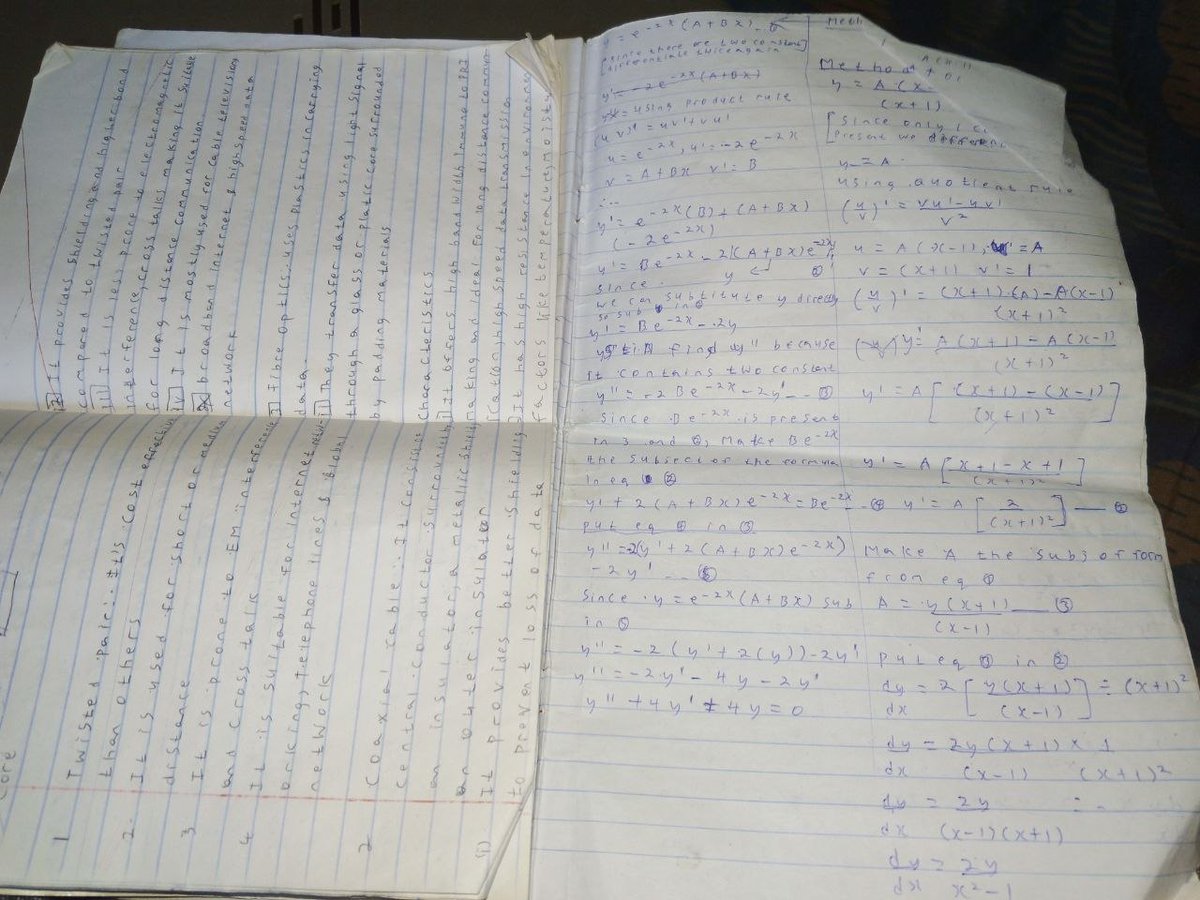 1 Twisted pair:. It's cost effective
than others
2. It is used for short or medium
distance
3 It is prone to EM interference
and cross talk
4 It is suitable for internet
orking, Telephone lines & global
network
2 Coaxial cable:. It consist
central conductor surrounding
an insulator, a metallic shield
an outer insulator
(i) It provides better shielding
to prevent loss of data
It provides shielding and higher band
compared to twisted pair
iii It is less prone to electromagnetic
interference, cross talks making it suitable
for long distance communication
iv It is mostly used for cable television
broadband internet & high speed data
network
3 Fibre optics, uses plastics in carrying
data.
i They transfer data using light signal
through a glass or platic core surrounded
by padding materials
characteristics
i) It offers high band width, immune to
making and ideal for long distance commun
ication, high speed data trasmission
It has high resistance to environm
factors like temperature, moist
y = e^-2x (A+Bx)
since there are two constant
differentiate twice again
y' = -2e^-2x (A+Bx)
using product rule
(uv)' = uv' + vu'
u = e^-2x, u' = -2e^-2x
v = A+Bx v' = B
∴
y' = e^-2x (B) + (A+Bx)
(-2e^-2x)
y' = Be^-2x - 2(A+Bx)e^-2x
since y
we can substitute y directly
so sub in
y' = Be^-2x - 2y
find y'' because
it contains two constant
y'' = -2Be^-2x - 2y' -- ③
Since Be^-2x is present
in 3 and ②, Make Be^-2x
the subject of the formula
in eq ②
y' + 2(A+Bx)e^-2x = Be^-2x -- ④
put eq ④ in ③
y'' = -2(y' + 2(A+Bx)e^-2x)
-2y' -- ⑤
Since y = e^-2x (A+Bx) sub
in ⑤
y'' = -2(y' + 2(y)) - 2y'
y'' = -2y' - 4y - 2y'
y'' + 4y' + 4y = 0
Method
y = A(x-
(x+1)
[Since only 1
present we differen
y = A
using quotient rule
(u/v)' = vu' - uv' / v²
u = A(x-1), u' = A
v = (x+1) v' = 1
(u/v)' = (x+1)(A) - A(x-1) / (x+1)²
y' = A(x+1) - A(x-1) / (x+1)²
y' = A [(x+1) - (x-1) / (x+1)²]
y' = A [x+1-x+1 / (x+1)²]
y' = A [2 / (x+1)²] -- ②
Make A the subj of form
from eq ①
A = y(x+1) / (x-1) -- ③
put eq ③ in ②
dy/dx = 2 [y(x+1) / (x-1)] ÷ (x+1)²
dy/dx = 2y(x+1) / (x-1) × 1 / (x+1)²
dy/dx = 2y / (x-1)(x+1)
dy/dx = 2y / x²-1